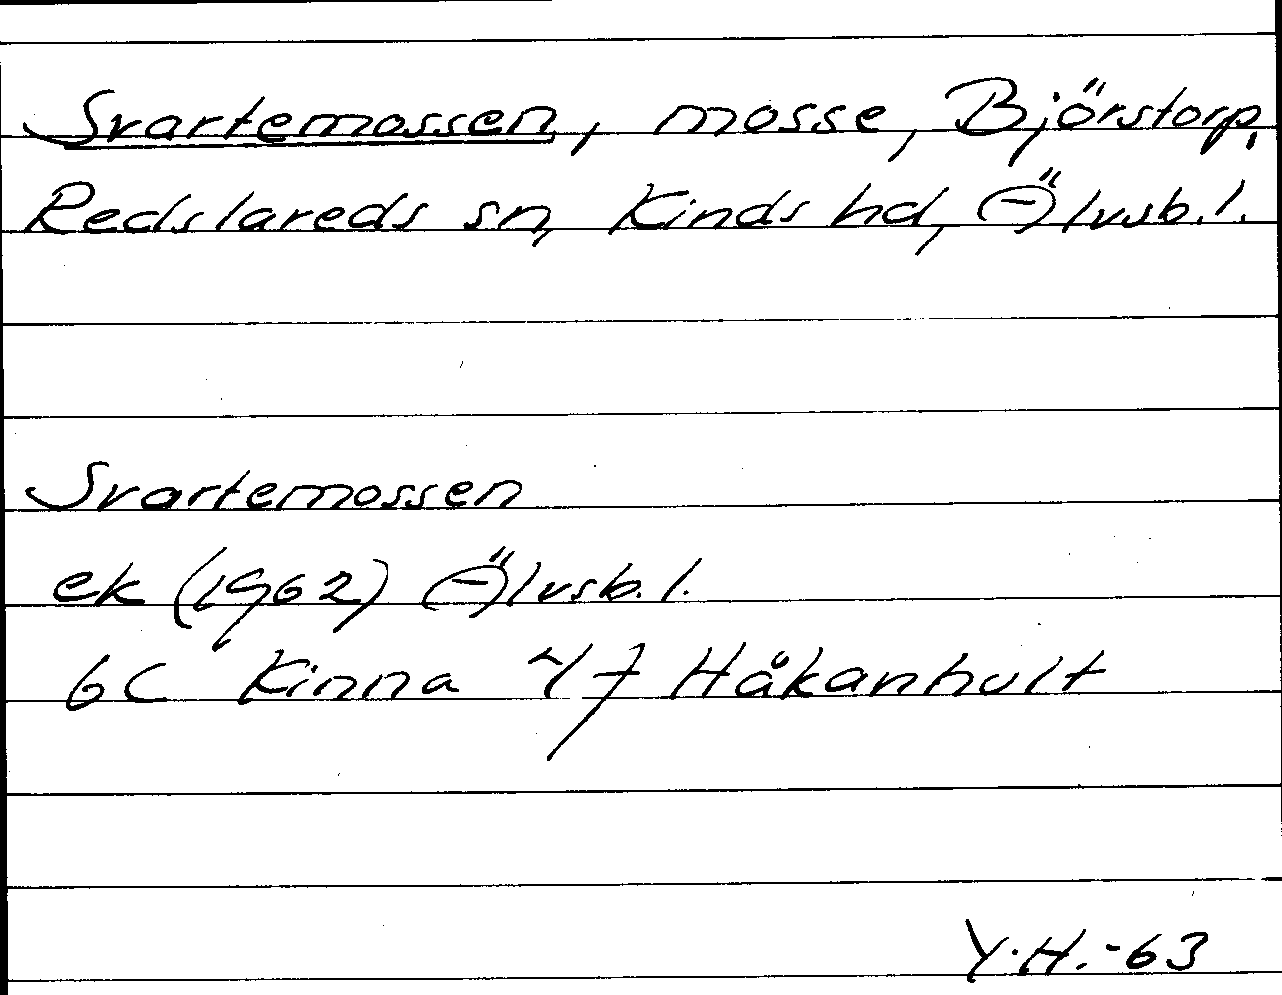 Svartemossen, mosse, Björstorp,
Redslareds sn, Kinds hd, Älvsb. l.
Svartemossen
ek (1962) Älvsb. l.
6C Kinna Håkanhult
Y.H.-63